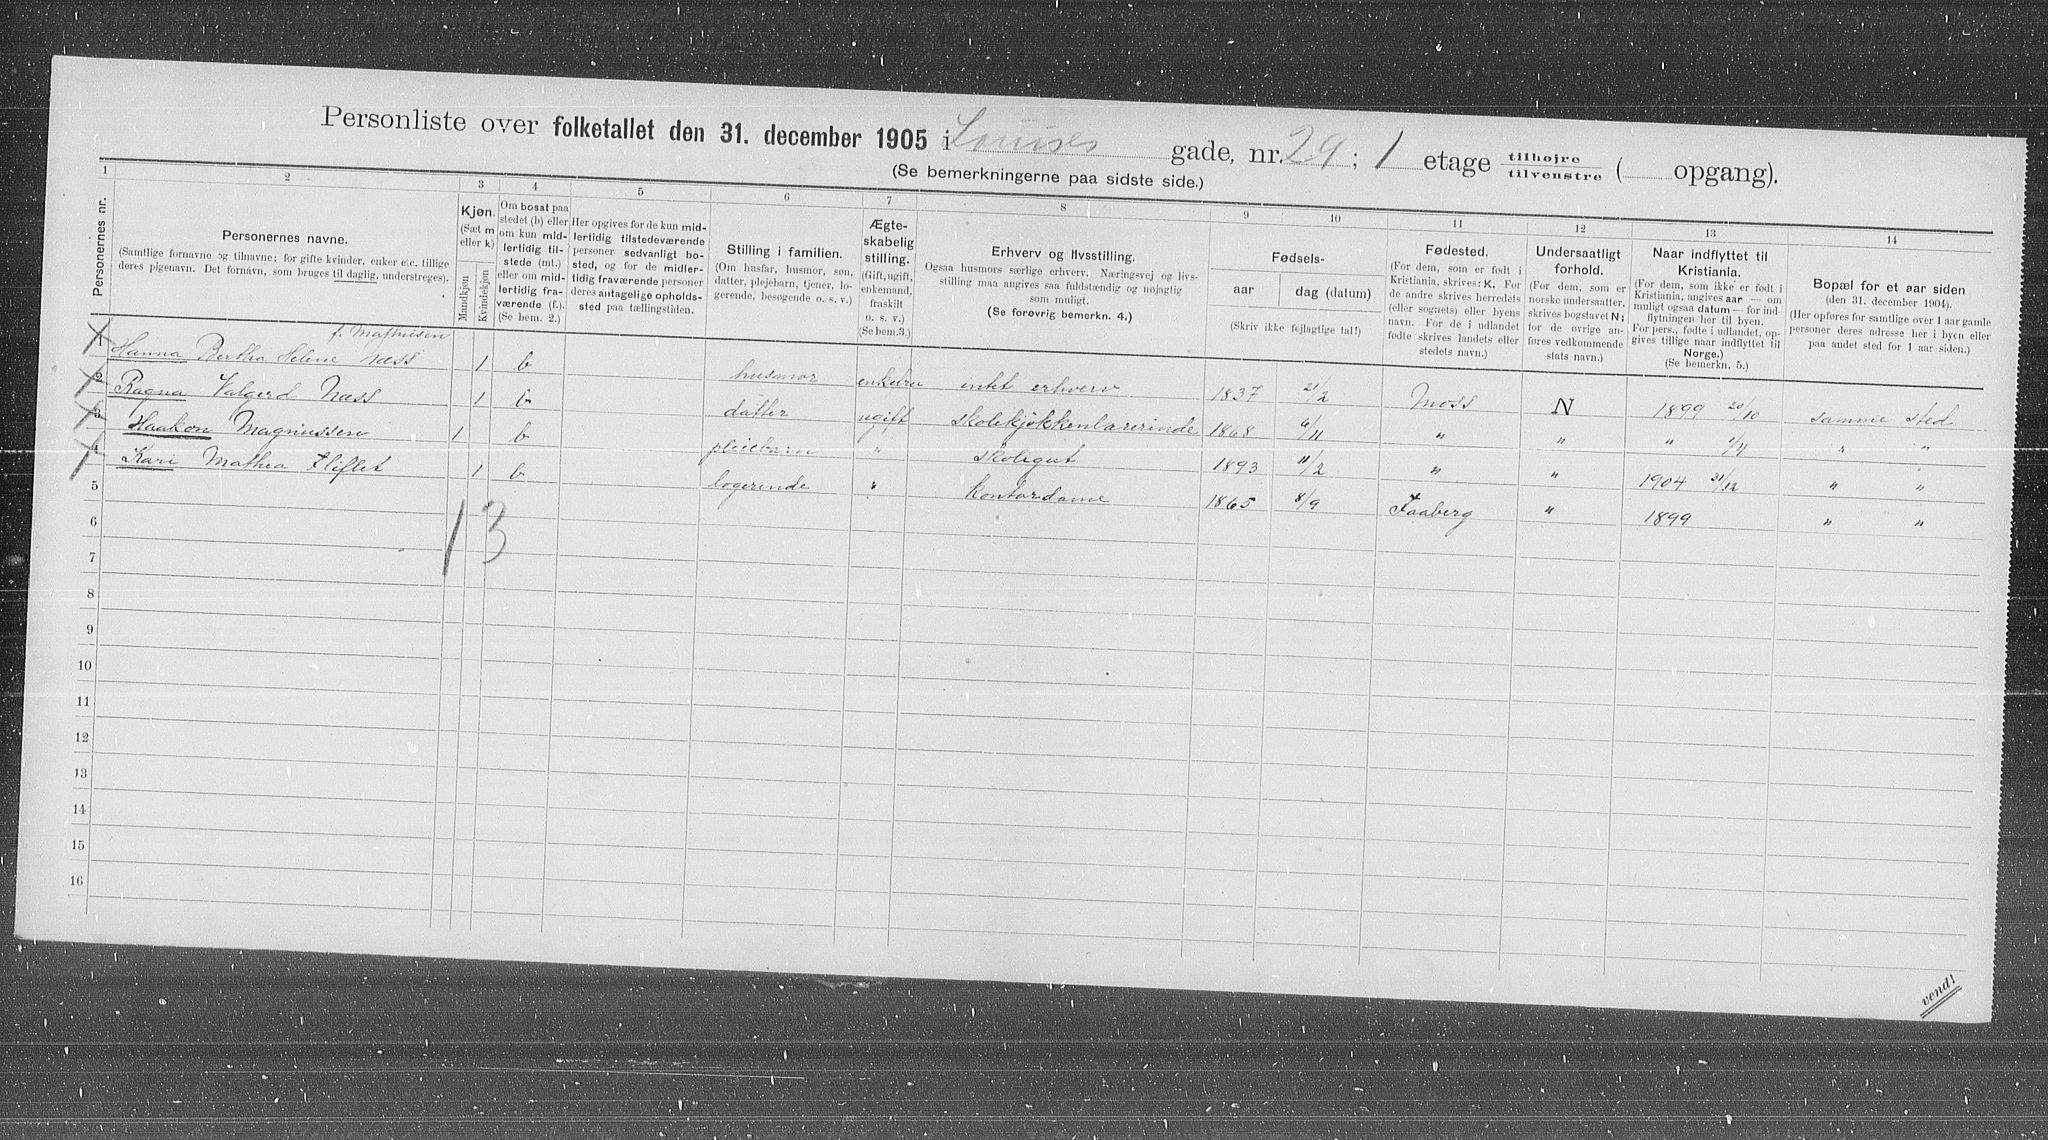 Personliste over folketallet den 31. december 1905 i Louises gade, nr. 29; 1 etage tilhøjre tilvenstre ( opgang).
(Se bemerkningerne paa sidste side.)
1 2 3 4 5 6 7 8 9 10 11 12 13 14
Personernes nr.
Personernes navne.
(Samtlige fornavne og tilnavne; for gifte kvinder, enker etc. tillige
deres pigenavn. Det fornavn, som bruges til daglig, understreges).
Kjøn.
(Sæt m
eller k)
Mandkjøn
Kvindekjøn
Om bosat paa
stedet (b) eller
om kun mid-
lertidig til-
stede (mt.)
eller om mid-
lertidig fra-
værende (f.).
(Se bem. 2.)
Her opgives for de kun mid-
lertidig tilstedeværende
personer sedvanligt bo-
sted, og for de midler-
tidig fraværende personer
deres antagelige opholds-
sted paa tællingstiden.
Stilling i familien.
(Om husfar, husmor, søn,
datter, plejebarn, tjener, lo-
gerende, besøgende o. s. v.)
Ægte-
skabelig
stilling.
(Gift, ugift,
enkemand,
fraskilt
o. s. v.)
(Se bem.3.)
Erhverv og livsstilling.
Ogsaa husmors særlige erhverv. Næringsvej og livs-
stilling maa angives saa fuldstændig og nøjagtig
som muligt.
(Se forøvrig bemerkn. 4.)
Fødsels-
aar
dag (datum)
(Skriv ikke fejlagtige tal!)
Fødested.
(For dem, som er født i
Kristiania, skrives: K. For
de andre skrives herredets
(eller sognets) eller byens
navn. For de i udlandet
fødte skrives landets eller
stedets navn.)
Undersaatligt
forhold.
(For dem, som er
norske undersaatter,
skrives bogstavet N;
for de øvrige an-
føres vedkommende
stats navn.)
Naar indflyttet til
Kristiania.
(For dem, som ikke er født i
Kristiania, angives aar — om
muligt ogsaa datum — for ind-
flytningen her til byen.
For pers., fødte i udlandet, op-
gives tillige naar indflyttet til
Norge.)
(Se bemerkn. 5.)
Bopæl for et aar siden
(den 31. december 1904).
(Her opføres for samtlige over 1 aar gamle
personer deres adresse her i byen eller
paa andet sted for 1 aar siden.)
f. Mathiesen
1 Hanna Bertha Helene Næss 1 b husmor enkefru intet erhverv 1837 21/2 Moss N 1899 20/10 samme sted
2 Ragna Valgerd Næss 1 b datter ugift skolekjøkkenlærerinde 1868 6/11 " " " 1/4 " "
3 Haakon Magnussen 1 b pleiebarn " skolegut 1893 11/2 " " 1904 31/12 " "
4 Kari Mathea Fliflet 1 b logerende " Kontordame 1865 8/9 Faaberg " 1899 " "
5
1 3
6
7
8
9
10
11
12
13
14
15
16
vend!